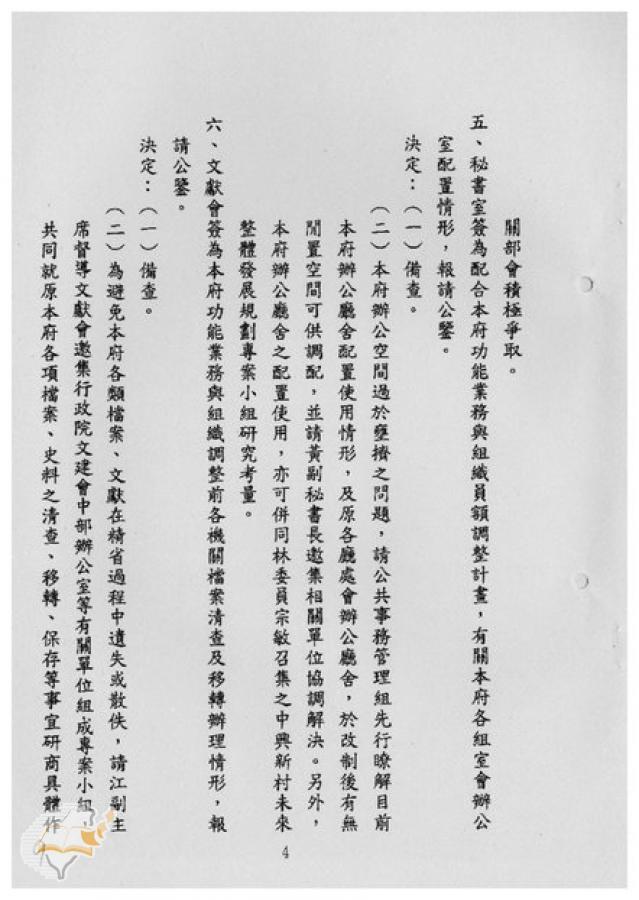 關部會積極爭取。
五、秘書室簽為配合本府功能業務與組織員額調整計畫，有關本府各組室會辦公
室配置情形，報請公鑒。
決定：（一）備查。
（二）本府辦公空間過於壅擠之問題，請公共事務管理組先行瞭解目前
本府辦公廳舍配置使用情形，及原各廳處會辦公廳舍，於改制後有無
閒置空間可供調配，並請黃副秘書長邀集相關單位協調解決。另外，
本府辦公廳舍之配置使用，亦可併同林委員宗敏召集之中興新村未來
整體發展規劃專案小組研究考量。
六、文獻會簽為本府功能業務與組織調整前各機關檔案清查及移轉辦理情形，報
請公鑒。
決定：（一）備查。
（二）為避免本府各類檔案、文獻在精省過程中遺失或散佚，請江副主
席督導文獻會邀集行政院文建會中部辦公室等有關單位組成專案小組，
共同就原本府各項檔案、史料之清查、移轉、保存等事宜研商具體作
4